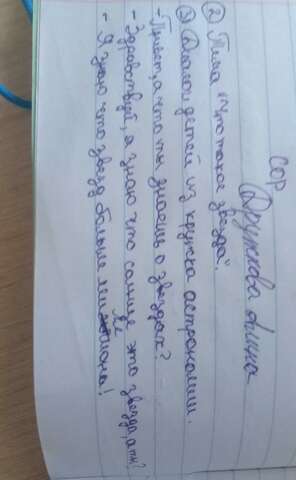 СОР
Дружкова Алина
② Тема "Что такое звезда".
③ Диалог детей из кружка астрономии.
- Привет, а что ты знаешь о звездах?
- Здравствуй, я знаю что солнце это звезда, а ты?
- Я знаю что звезд больше миллиона!